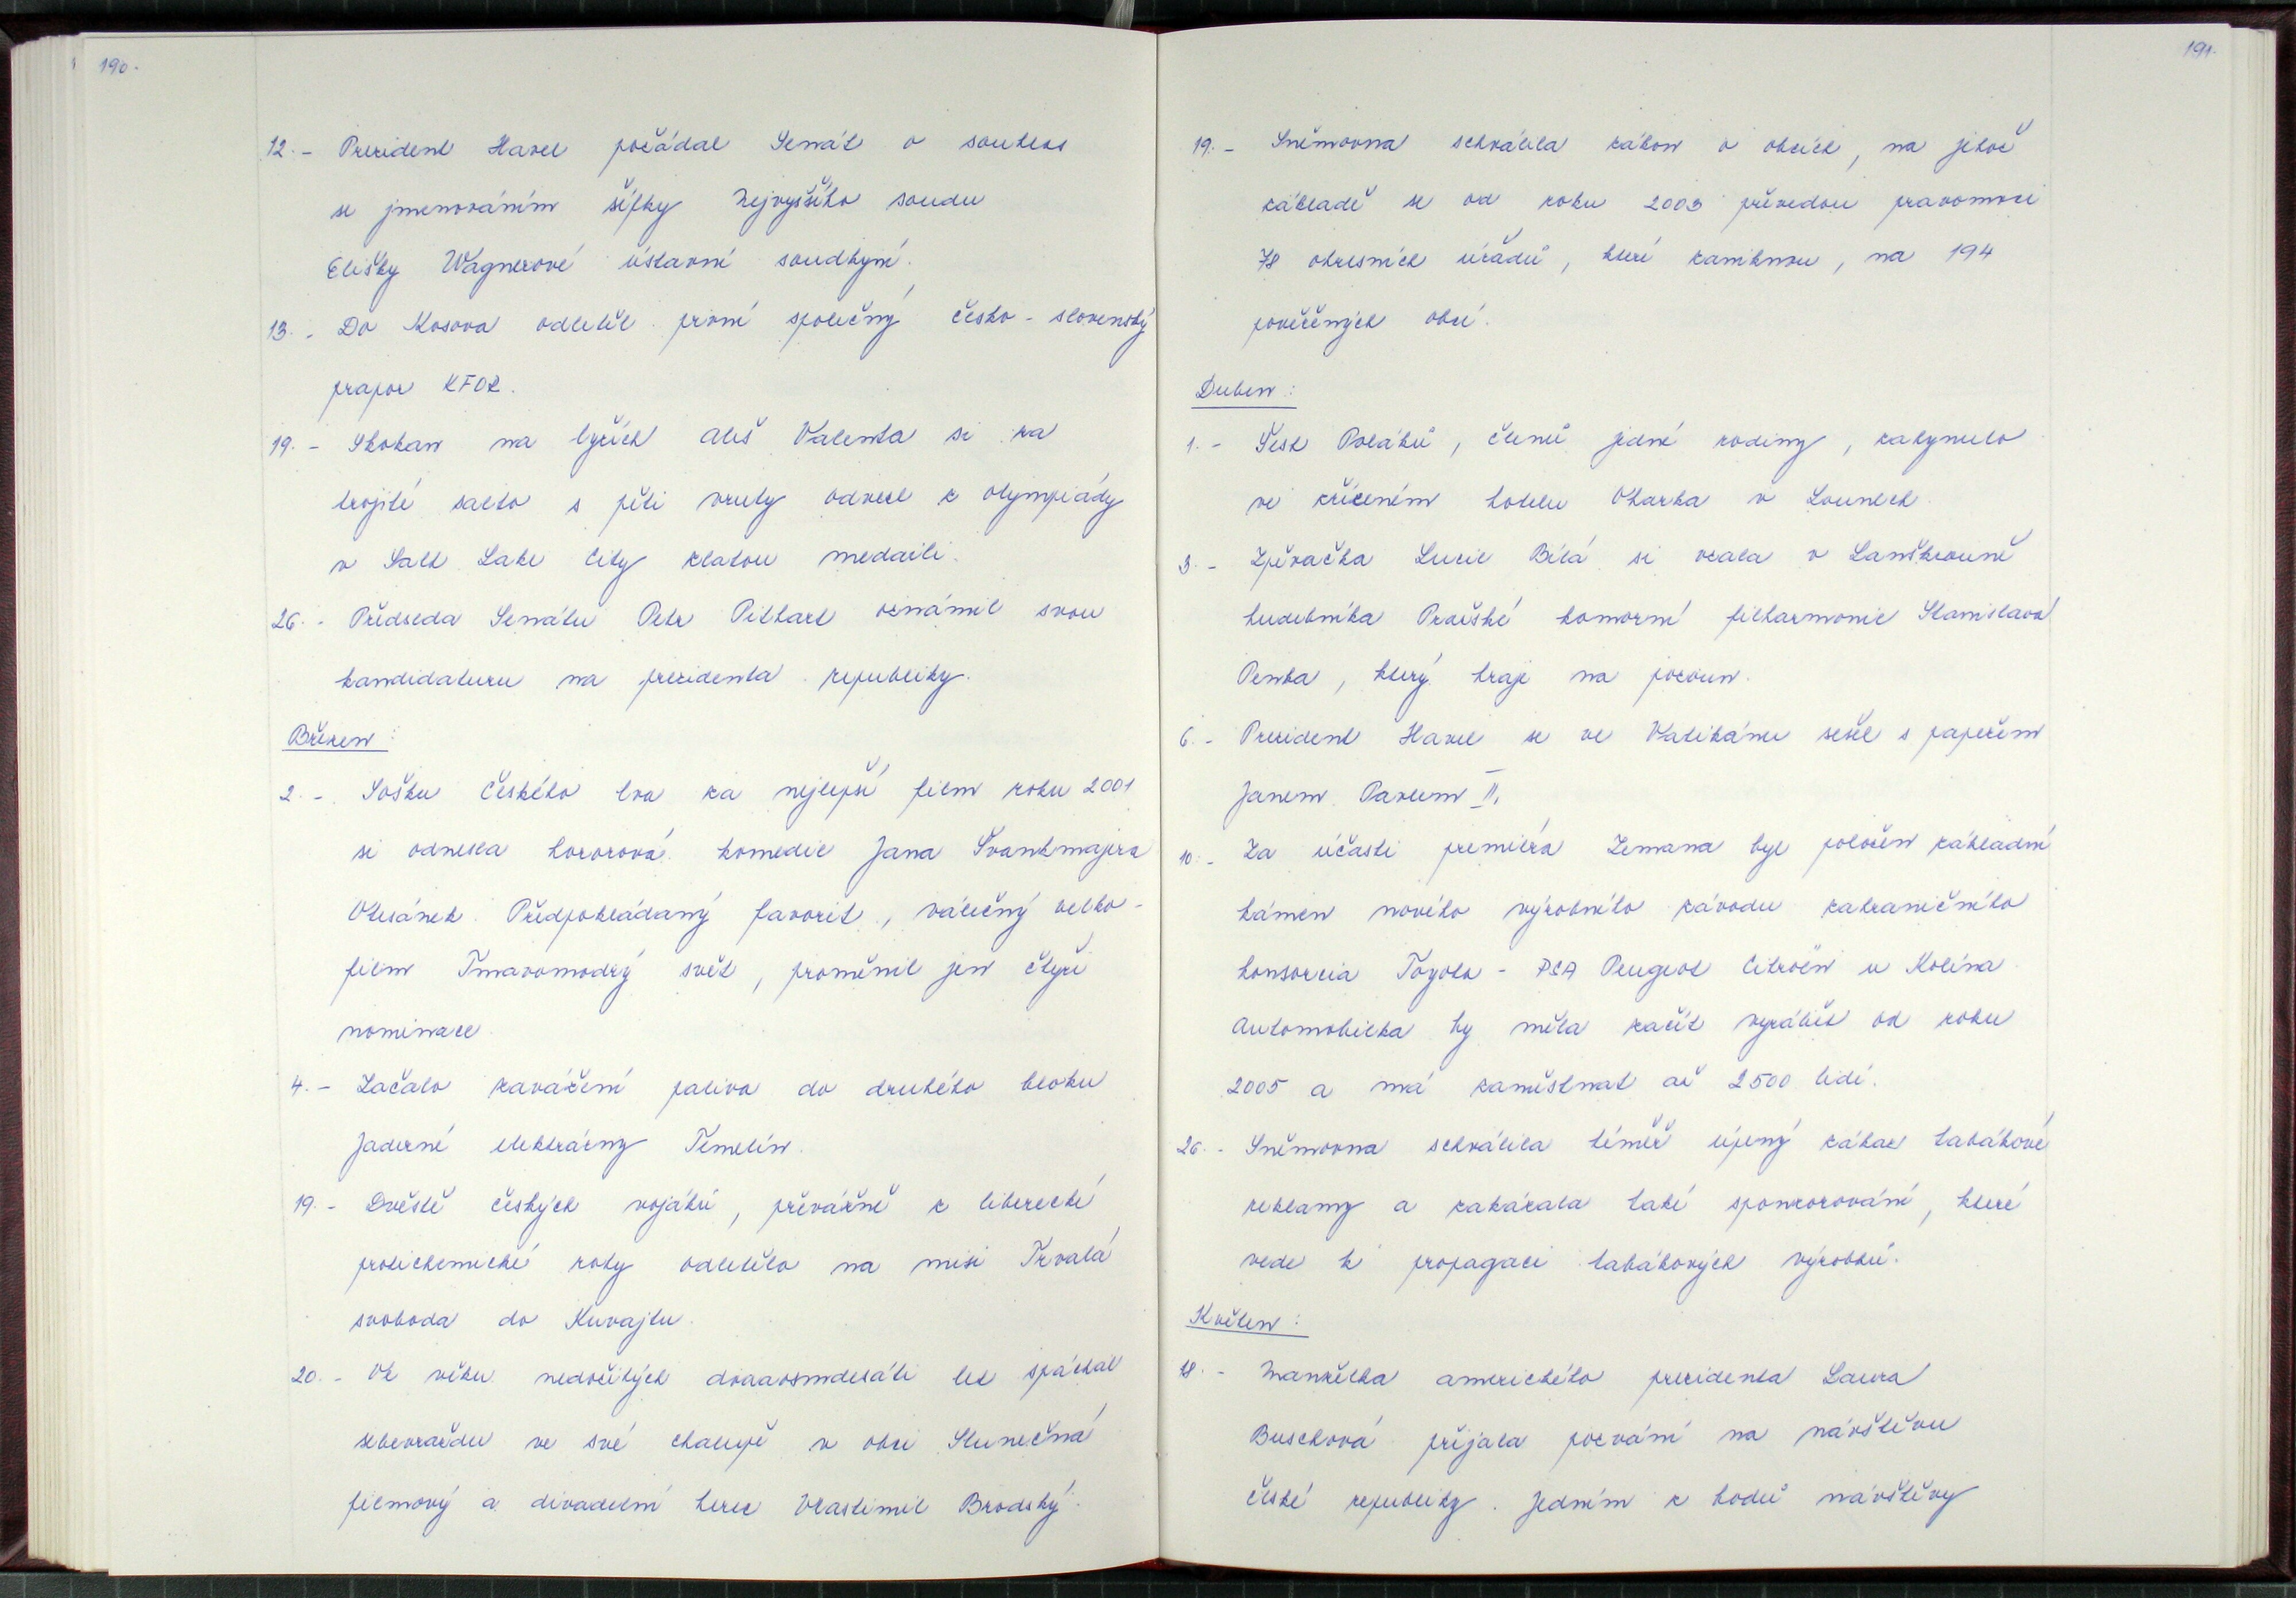 190.
12. - Prezident Havel požádal Senát o souhlas
se jmenováním šéfky Nejvyššího soudu
Elišky Wagnerové ústavní soudkyní.
13. - Do Kosova odletěl první společný česko-slovenský
prapor KFOR.
19. - Skokan na lyžích Aleš Valenta si za
trojité salto s pěti vruty odvezl z olympiády
v Salt Lake City zlatou medaili.
26. - Předseda Senátu Petr Pithart oznámil svou
kandidaturu na prezidenta republiky.
Březen:
2. - Sošku Českého lva za nejlepší film roku 2001
si odnesla hororová komedie Jana Švankmajera
Otesánek. Předpokládaný favorit, válečný velko-
film Tmavomodrý svět, proměnil jen čtyři
nominace.
4. - Začalo zavážení paliva do druhého bloku
Jaderné elektrárny Temelín.
19. - Dvěstě českých vojáků, převážně z liberecké
protichemické roty odletělo na misi Trvalá
svoboda do Kuvajtu.
20. - Ve věku nedožitých dvaaosmdesáti let spáchal
sebevraždu ve své chalupě v obci Slunečná
filmový a divadelní herec Vlastimil Brodský.
191.
19. - Sněmovna schválila zákon o obcích, na jehož
základě se od roku 2003 převedou pravomoci
78 okresních úřadů, které zaniknou, na 194
pověřených obcí.
Duben:
1. - Šest Poláků, členů jedné rodiny, zahynulo
ve zříceném hotelu Oharka v Lounech.
3. - Zpěvačka Lucie Bílá si vzala v Lanškrouně
hudebníka Pražské komorní filharmonie Stanislava
Penka, který hraje na pozoun.
6. - Prezident Havel se ve Vatikánu sešel s papežem
Janem Pavlem II.
10. - Za účasti premiéra Zemana byl položen základní
kámen nového výrobního závodu zahraničního
konsorcia Toyota - PSA Peugeot Citroën u Kolína.
Automobilka by měla začít vyrábět od roku
2005 a má zaměstnat až 2500 lidí.
26. - Sněmovna schválila téměř úplný zákaz tabákové
reklamy a zakázala také sponzorování, které
vede k propagaci tabákových výrobků.
Květen:
18. - Manželka amerického prezidenta Laura
Buschová přijala pozvání na návštěvu
České republiky. Jedním z bodů návštěvy